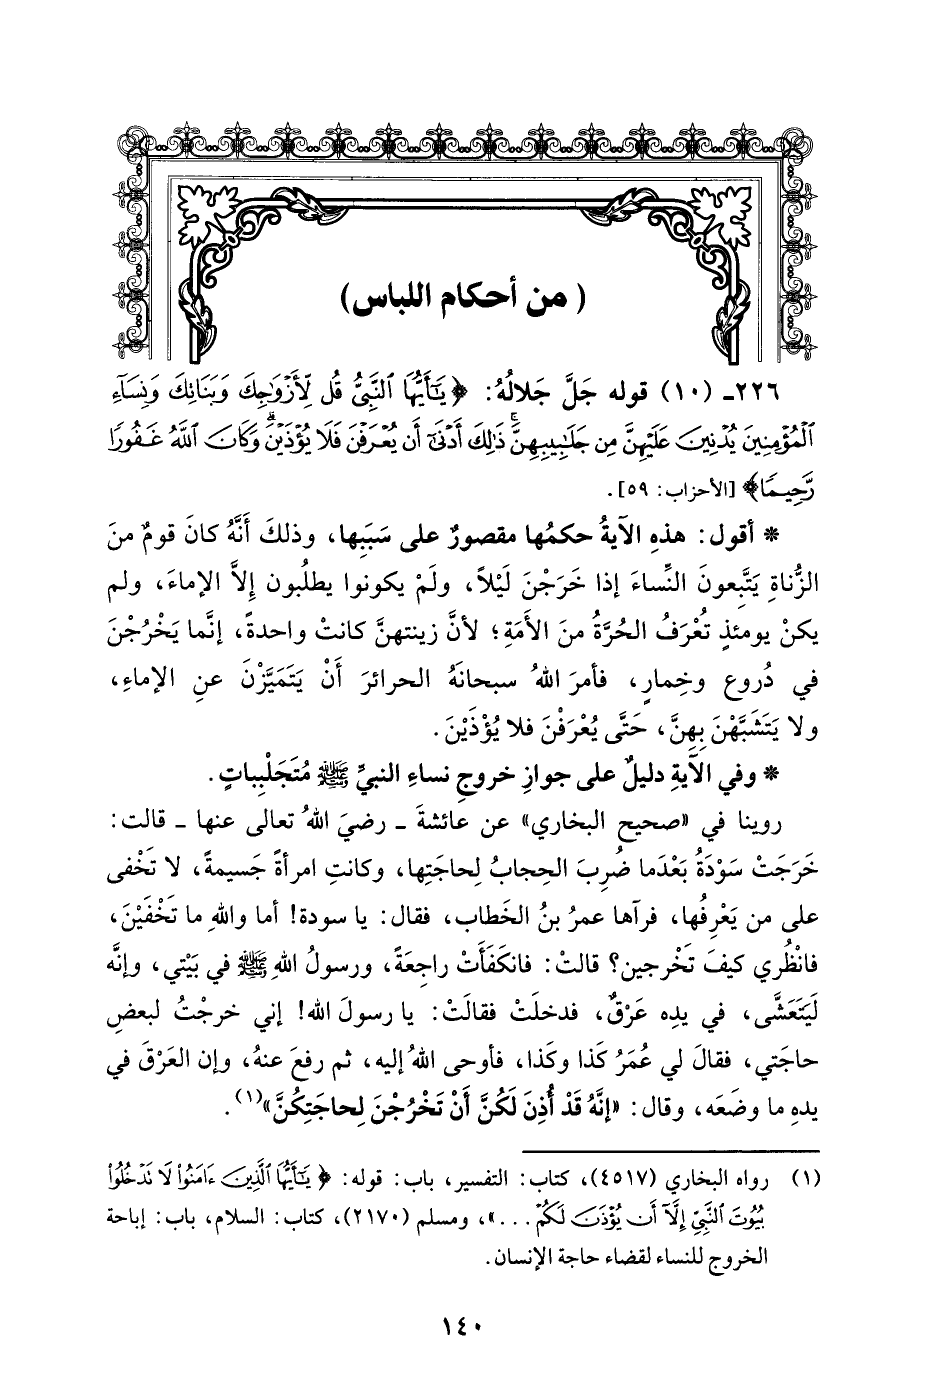 ( من أحكام اللباس)
٢٢٦ـ (١٠) قوله جَلَّ جَلالُهُ: ﴿يَٰٓأَيُّهَا ٱلنَّبِىُّ قُل لِّأَزْوَٰجِكَ وَبَنَاتِكَ وَنِسَآءِ
ٱلْمُؤْمِنِينَ يُدْنِينَ عَلَيْهِنَّ مِن جَلَٰبِيبِهِنَّ ۚ ذَٰلِكَ أَدْنَىٰٓ أَن يُعْرَفْنَ فَلَا يُؤْذَيْنَ ۗ وَكَانَ ٱللَّهُ غَفُورًا
رَّحِيمًا﴾ [الأحزاب: ٥٩].
* أقول: هذهِ الآيةُ حكمُها مقصورٌ على سَبَبِها، وذلكَ أَنَّهُ كانَ قومٌ منَ
الزُّناةِ يَتَّبعونَ النِّساءَ إذا خَرَجْنَ لَيْلاً، ولَمْ يكونوا يطلُبون إلاَّ الإماءَ، ولم
يكنْ يومئذٍ تُعْرَفُ الحُرَّةُ منَ الأَمَةِ؛ لأنَّ زينتهنَّ كانتْ واحدةً، إنَّما يَخْرُجْنَ
في دُروعٍ وخِمارٍ، فأمرَ اللهُ سبحانَهُ الحرائرَ أَنْ يَتَمَيَّزْنَ عنِ الإماءِ،
ولا يَتَشَبَّهْنَ بِهِنَّ، حَتَّى يُعْرَفْنَ فلا يُؤْذَيْنَ.
* وفي الآيةِ دليلٌ على جوازِ خروجِ نساءِ النبيِّ ﷺ مُتَجَلْبِباتٍ.
روينا في «صحيح البخاري» عن عائشةَ ـ رضيَ اللهُ تعالى عنها ـ قالت:
خَرَجَتْ سَوْدَةُ بَعْدَما ضُرِبَ الحِجابُ لِحاجَتِها، وكانتِ امرأةً جَسيمةً، لا تَخْفى
على من يَعْرِفُها، فرآها عمرُ بنُ الخَطاب، فقال: يا سودة! أما واللهِ ما تَخْفَيْنَ،
فانْظُري كيفَ تَخْرجين؟ قالتْ: فانكَفَأَتْ راجِعَةً، ورسولُ اللهِ ﷺ في بَيْتي، وإنَّه
لَيَتَعَشَّى، في يدِه عَرْقٌ، فدخلَتْ فقالَتْ: يا رسولَ الله! إني خرجْتُ لبعضِ
حاجَتي، فقالَ لي عُمَرُ كَذا وكَذا، فأوحى اللهُ إليه، ثم رفعَ عنهُ، وإن العَرْقَ في
يدهِ ما وضَعَه، وقال: «إنَّهُ قَدْ أُذِنَ لَكُنَّ أَنْ تَخْرُجْنَ لِحاجَتِكُنَّ»(١).
(١) رواه البخاري (٤٥١٧)، كتاب: التفسير، باب: قوله: ﴿يَٰٓأَيُّهَا ٱلَّذِينَ ءَامَنُوا۟ لَا تَدْخُلُوا۟
بُيُوتَ ٱلنَّبِىِّ إِلَّآ أَن يُؤْذَنَ لَكُمْ...»، ومسلم (٢١٧٠)، كتاب: السلام، باب: إباحة
الخروج للنساء لقضاء حاجة الإنسان.
١٤٠